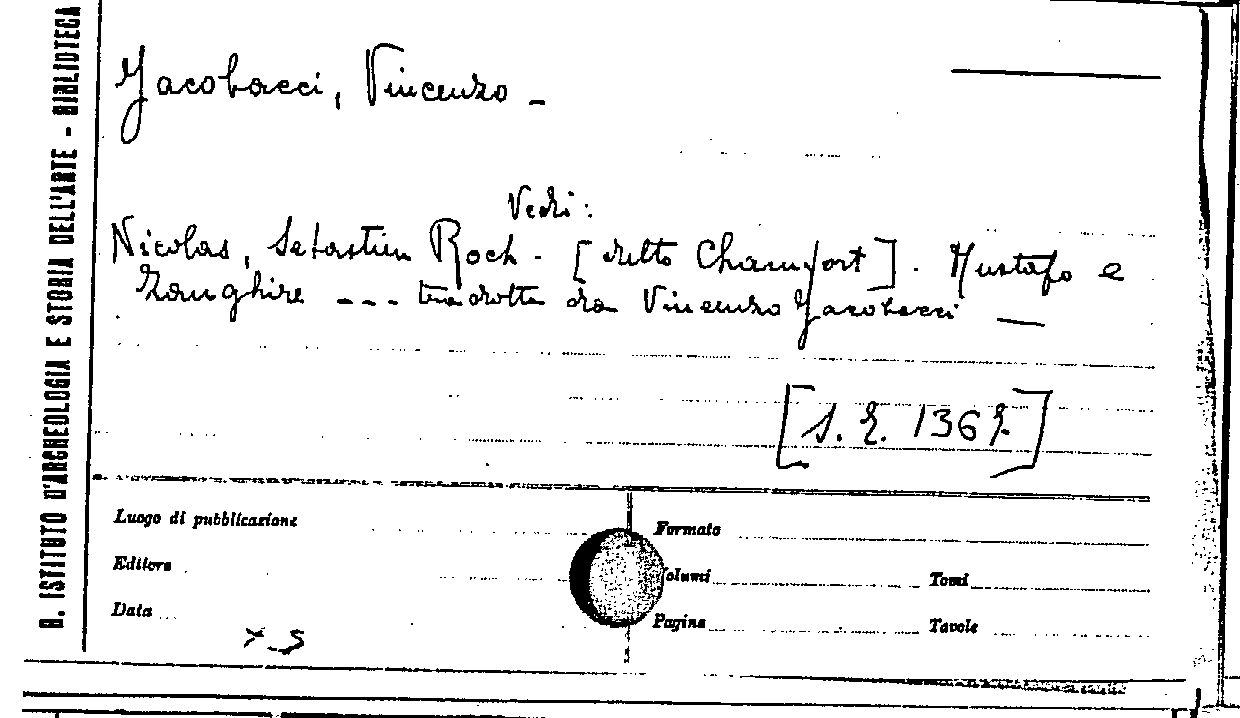 R. ISTITUTO D'ARCHEOLOGIA E STORIA DELL'ARTE - BIBLIOTECA
Jacobacci, Vincenzo -
Vedi:
Nicolas, Sebastien Roch - [detto Chamfort]. Mustafa e
Zeanghire --- tradotta da Vincenzo Jacobacci —
[S. E. 136
Luogo di pubblicazione
Formato
Editore
Volumi
Tomi
Data
Pagine
Tavole